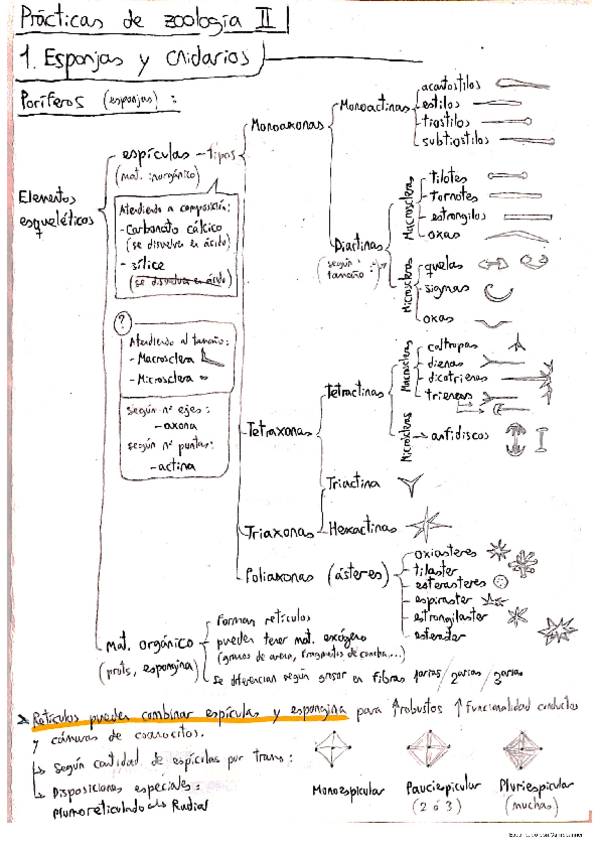 Prácticas de zoología II
1. Esponjas y cnidarios
Poríferos (esponjas):
Elementos esqueléticos
espículas - tipos
(mat. inorgánico)
Atendiendo a composición:
- Carbonato cálcico
(se disuelve en ácido)
- sílice
(se disuelve en ácido)
?
Atendiendo al tamaño:
- Macrosclera
- Microsclera
según nº ejes:
- axona
según nº puntas:
- actina
Monoaxonas
Monoactinas
acantostilos
estilos
tiostilos
subtiostilos
Diactinas
(según tamaño:)
Macroscleras
tilotes
tornotes
estrongilos
oxas
Microscleras
quelas
sigmas
oxas
Tetraxonas
Tetractinas
Macroscleras
caltropas
dienas
dicotrienas
trienas
Microscleras
anfidiscos
Triactina
Triaxonas
Hexactinas
Poliaxonas (ásteres)
oxiasteres
tilaster
esterasteres
espiraster
estrongilaster
Mat. orgánico
(prots, espongina)
Forman retículos
pueden tener mat. exógeno
(granos de arena, fragmentos de concha...)
Se diferencian según grosor en fibras
Retículos pueden combinar espículas y espongina para ↑robustos ↑Funcionalidad conductos
y cámaras de coanocitos.
Según cantidad de espículas por tramo:
Disposiciones especiales:
Plumoreticulado Radial
Monoespicular
Pauciespicular
(2 ó 3)
Pluriespicular
(muchas)